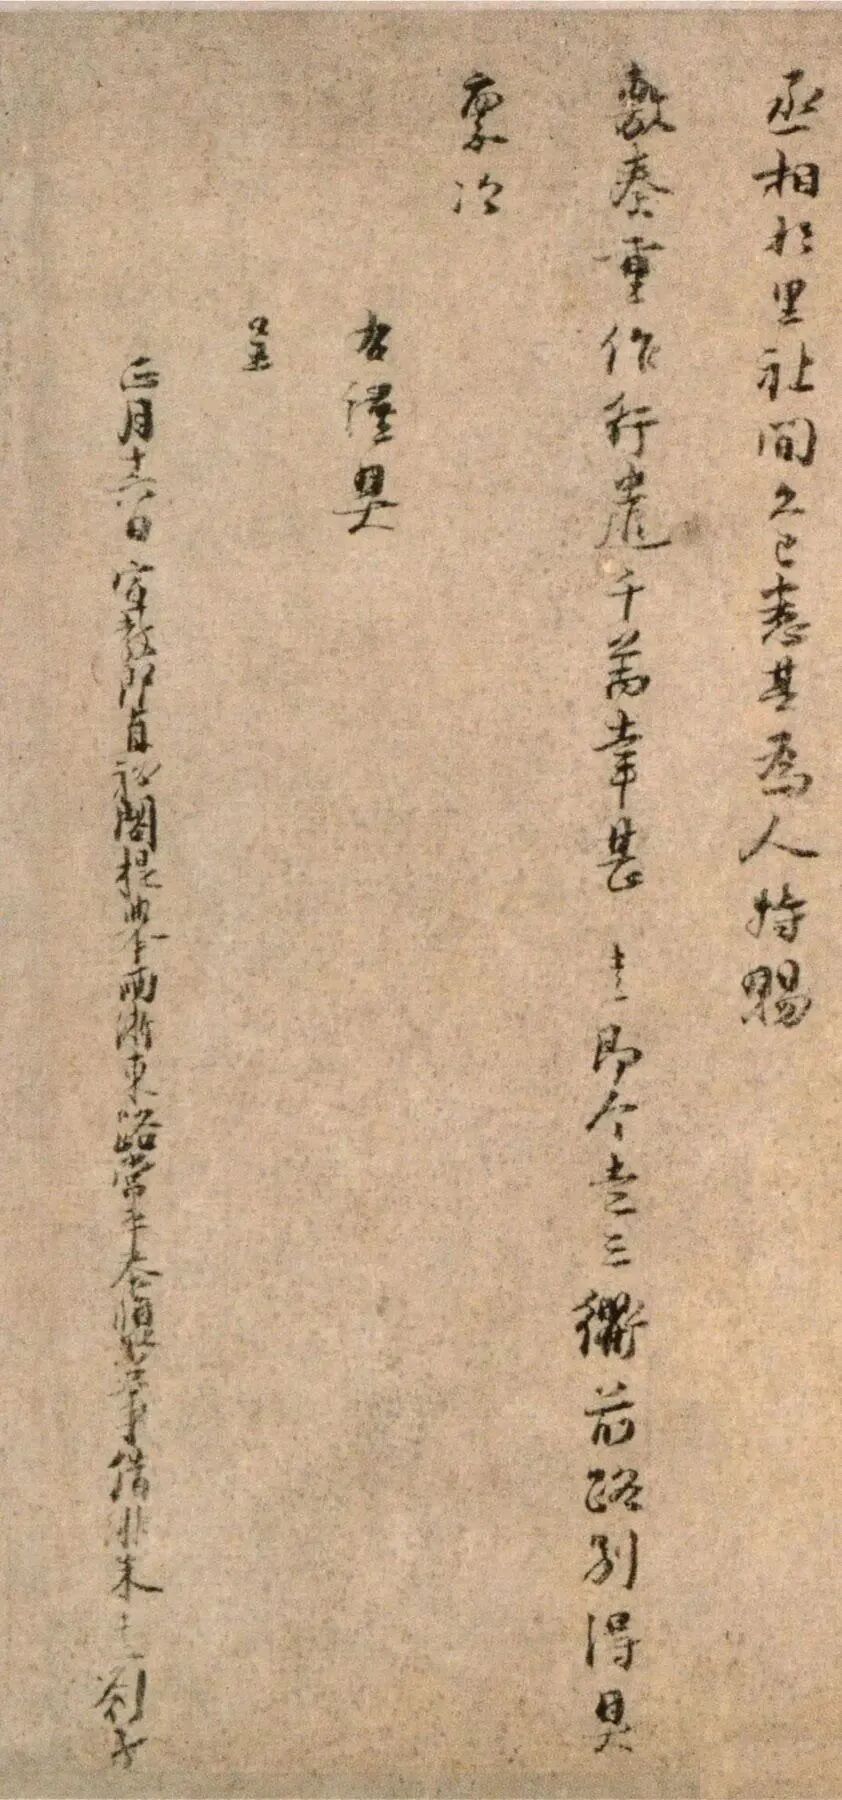 丞相於里社間久已悉其為人特賜
敷奏重作行遣千萬幸甚 熹即今走三衢前路別得具
稟次
右謹具
呈
正月十六日宣教郎直秘閣提舉兩浙東路常平茶鹽公事借緋朱熹劄子